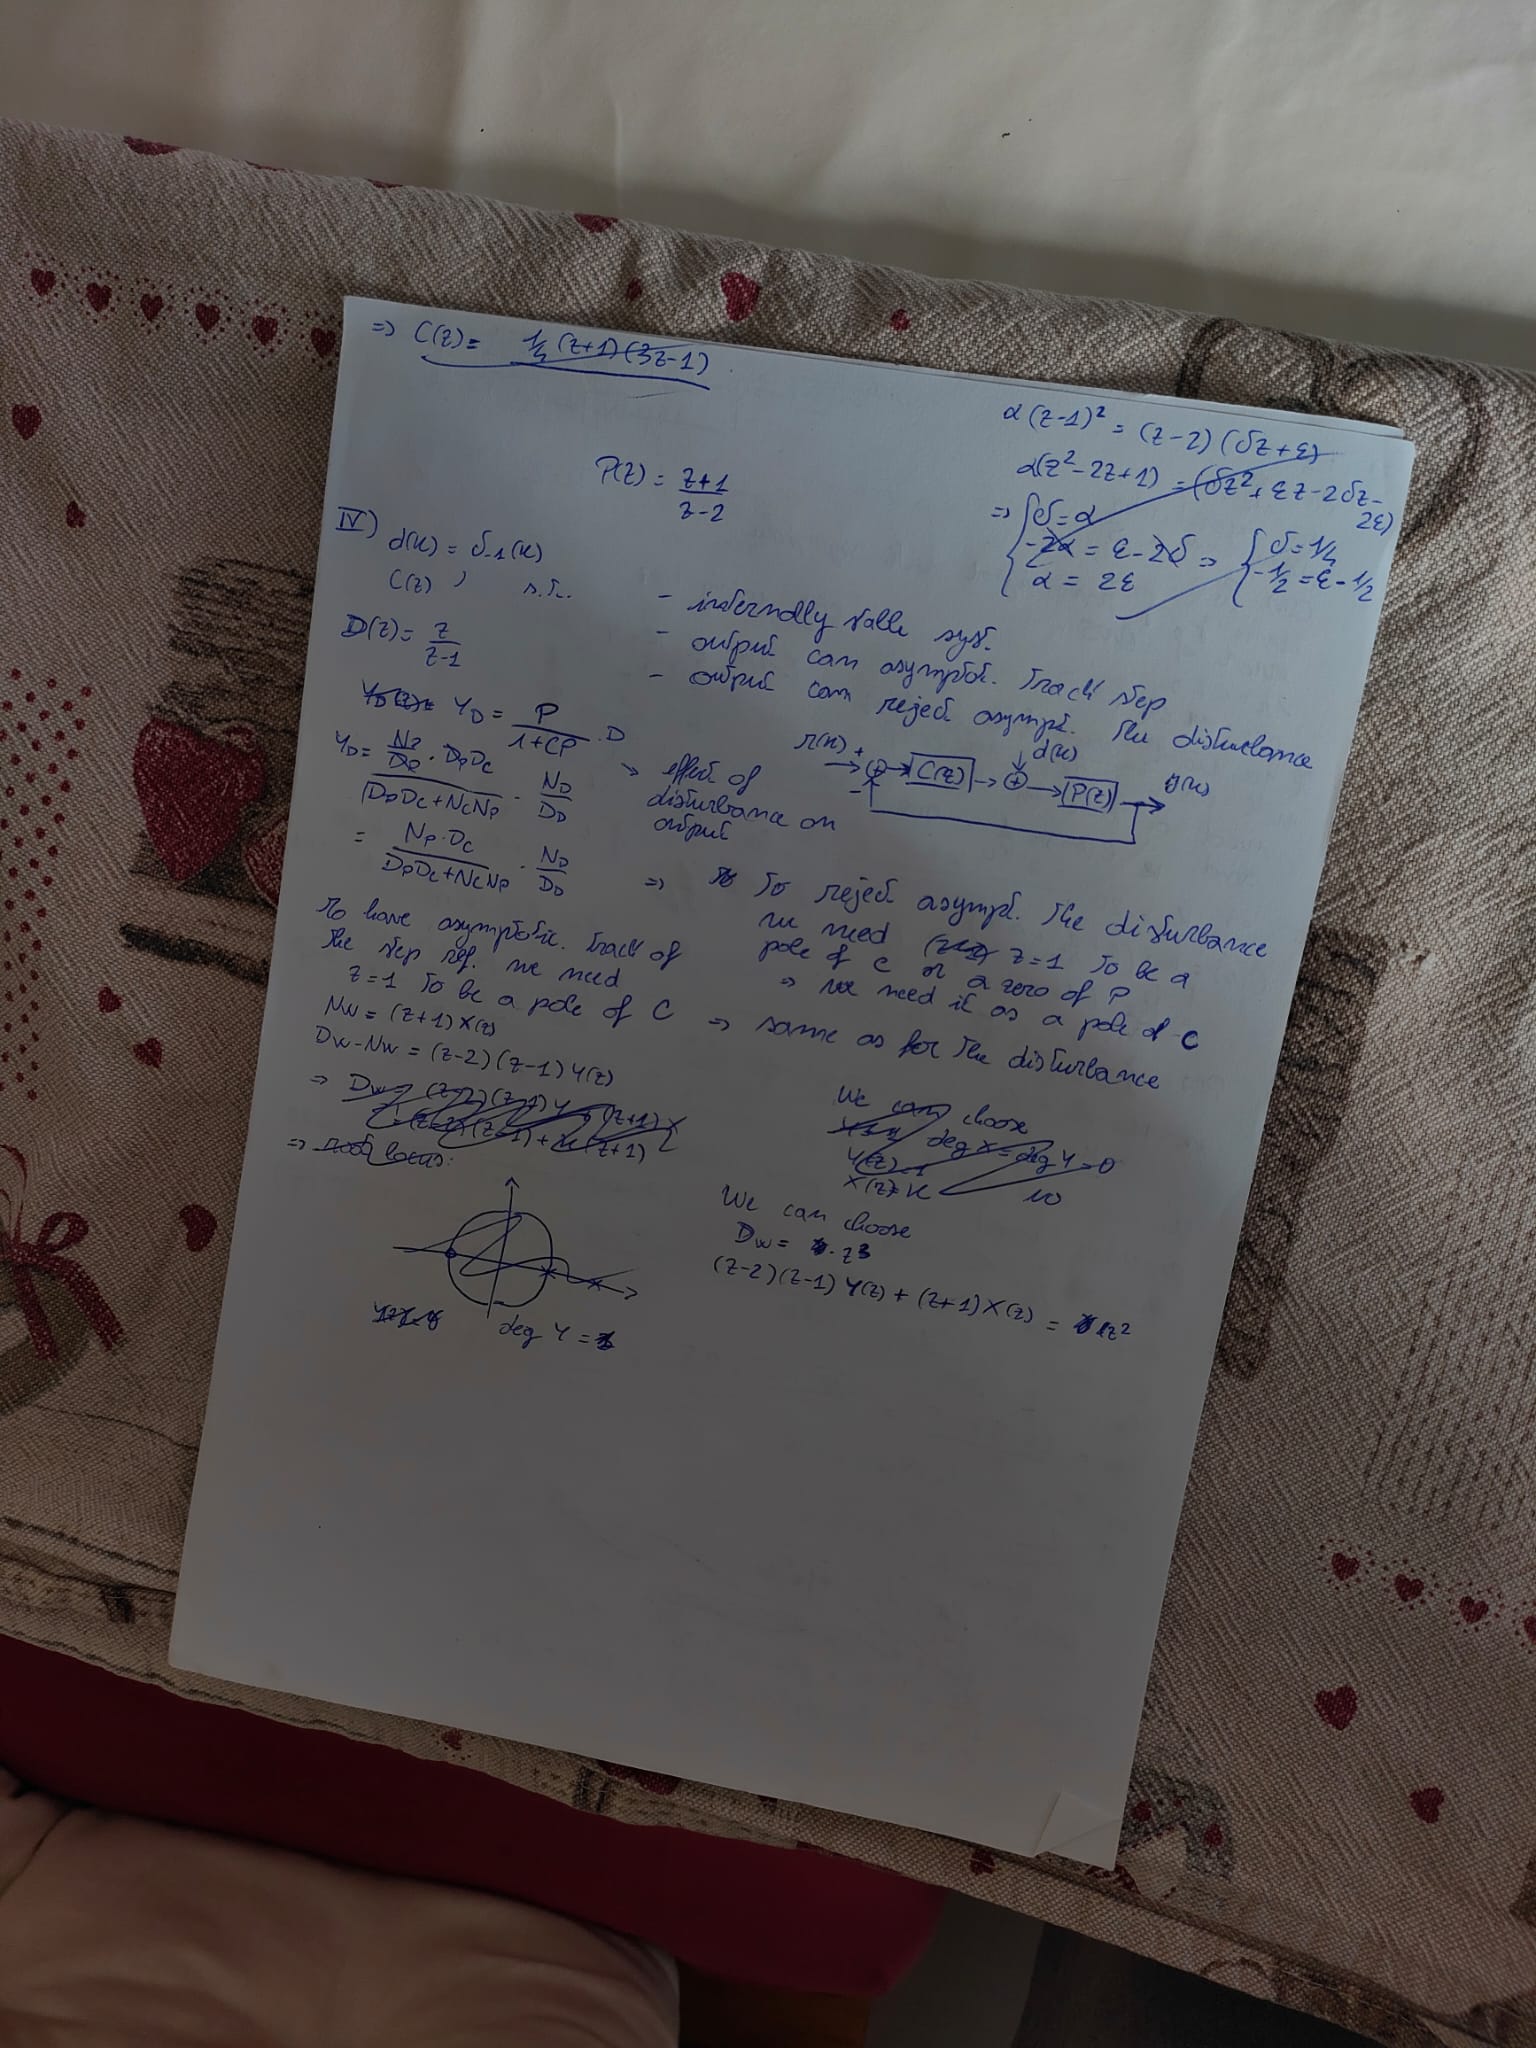 => C(z) = 1/4 (z+1)(3z-1)
α(z-1)² = (z-2)(δz+ε)
α(z²-2z+1) = (δz²+εz-2δz-
2ε)
=> { δ=α
-2α = ε-2δ => { δ=1/4
α = 2ε
-1/2 = ε-1/2
P(z) = z+1 / z-2
IV) d(k) = δ-1(k)
C(z), s.t.
- internally stable syst.
- output can asymptot. track step
- output can reject asympt. the disturbance
D(z) = z / z-1
Y_D = P / 1+CP · D
Y_D = N_P / D_P · D_P D_C / D_P D_C + N_C N_P · N_D / D_D
-> effect of
disturbance on
output
r(k) + C(z) d(k) + P(z) y(k)
-
= N_P · D_C / D_P D_C + N_C N_P · N_D / D_D
=> To reject asympt. the disturbance
we need z=1 to be a
pole of C or a zero of P
=> we need it as a pole of C
to have asymptotic. track of
the step ref. we need
z=1 to be a pole of C => same as for the disturbance
N_W = (z+1) X(z)
D_W - N_W = (z-2)(z-1) Y(z)
=> root locus:
We can choose
deg X = deg Y = 0
Y(z)=1
X(z)=K NO
We can choose
D_W = z³
(z-2)(z-1) Y(z) + (z+1) X(z) = z²
deg Y =